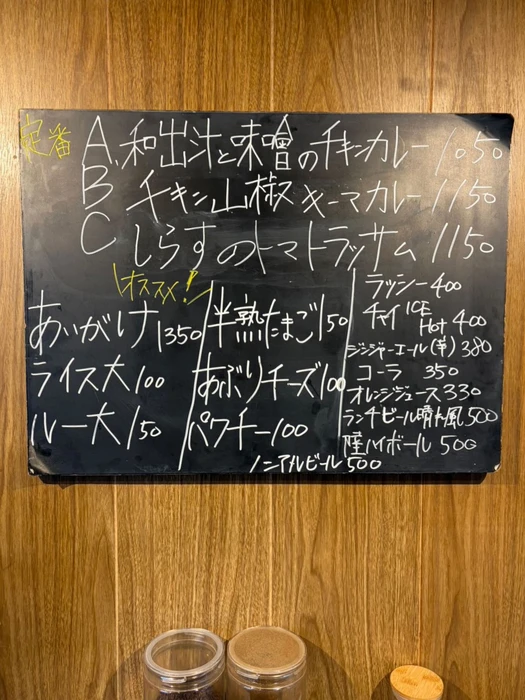 定番 A. 和出汁と味噌のチキンカレー 1050
B チキン山椒キーマカレー 1150
C しらすのトマトラッサム 1150
\オススメ!/
あいがけ 1350
ライス大 100
ルー大 150
半熟たまご 150
あぶりチーズ 100
パクチー 100
ノンアルビール 500
ラッシー 400
チャイ ICE Hot 400
ジンジャーエール(辛) 380
コーラ 350
オレンジジュース 330
ランチビール晴れ風 500
陸ハイボール 500